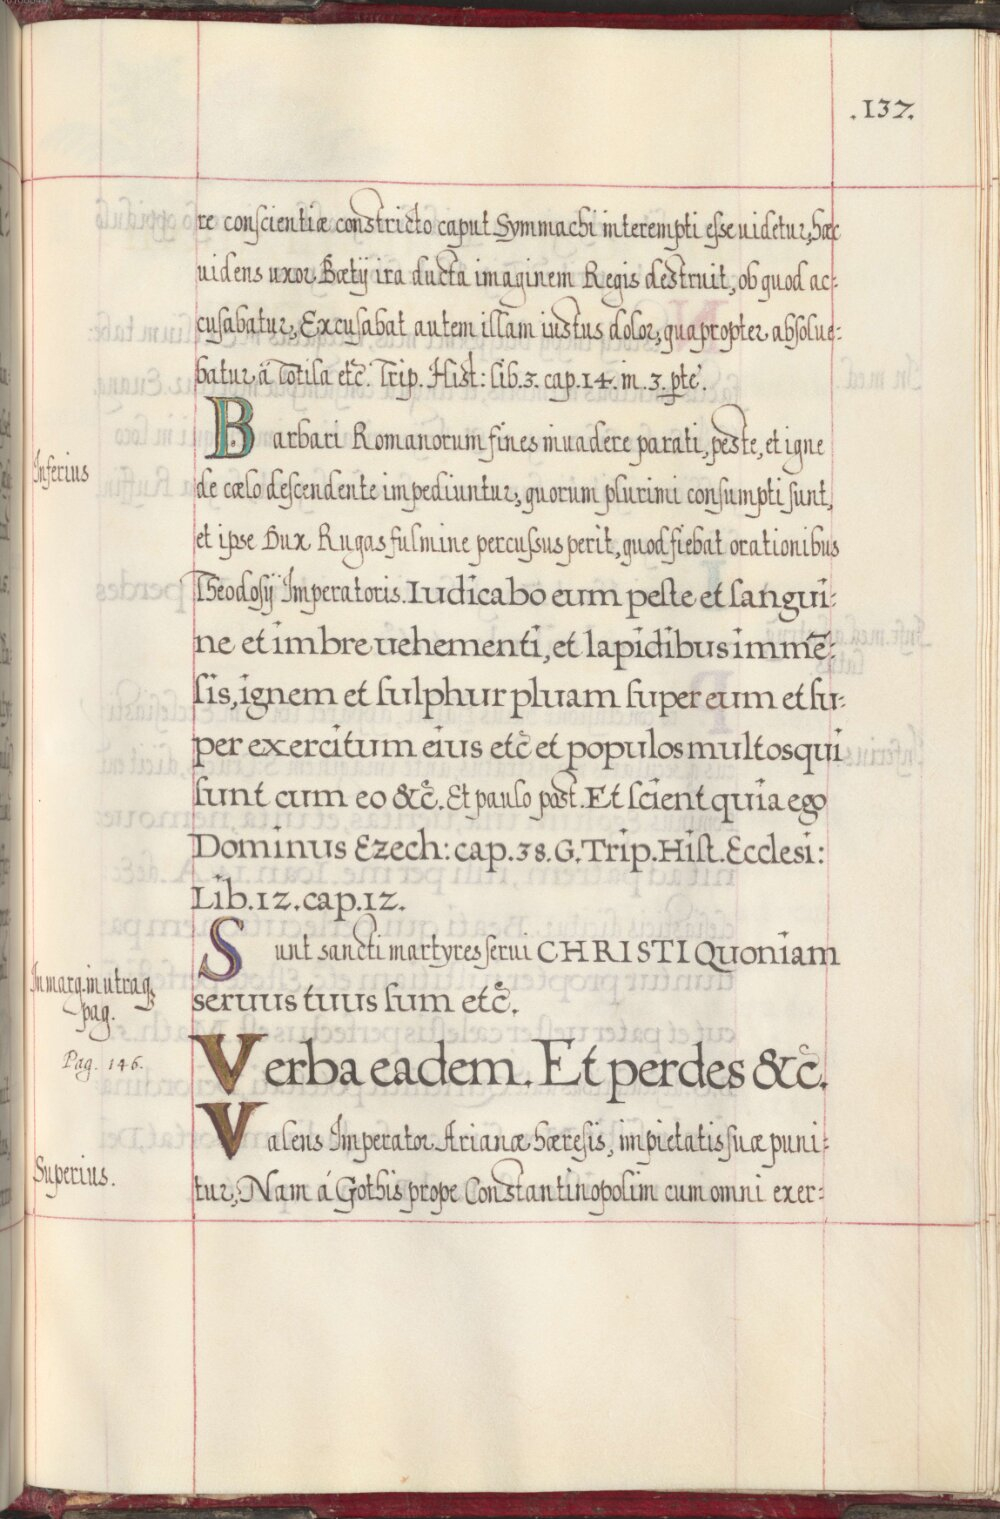 .137.
re conscientiæ constricto caput Symmachi interempti esse uidetur, hæc
uidens uxor Bœtij ira ducta imaginem Regis destruit, ob quod ac:
cusabatur, Excusabat autem illam iustus dolor, quapropter absolue:
batur á Totila etc̃. Trip. Hist: lib.3. cap.14. in .3. pte.
Barbari Romanorum fines inuadere parati, peste, et igne
Inferius
de cælo descendente impediuntur, quorum plurimi consumpti sunt,
et ipse Dux Rugas fulmine percussus perit, quod fiebat orationibus
Theodosij Imperatoris. Iudicabo eum peste et sangui:
ne et imbre uehementi, et lapidibus immẽ:
sis, ignem et sulphur pluam super eum et su:
per exercitum eius etc̃ et populos multos qui
sunt cum eo &c̃. Et paulo post. Et scient quia ego
Dominus Ezech: cap.38. G. Trip. Hist. Ecclesi:
Lib.12. cap.12.
Sunt sancti martyres serui CHRISTI Quoniam
In marg. in utraq;
pag.
seruus tuus sum etc̃.
Pag. 146.
Verba eadem. Et perdes &c̃.
Valens Imperator Arianæ hæresis, impietatis suæ puni:
Superius.
tur, Nam á Gothis prope Constantinopolim cum omni exer: